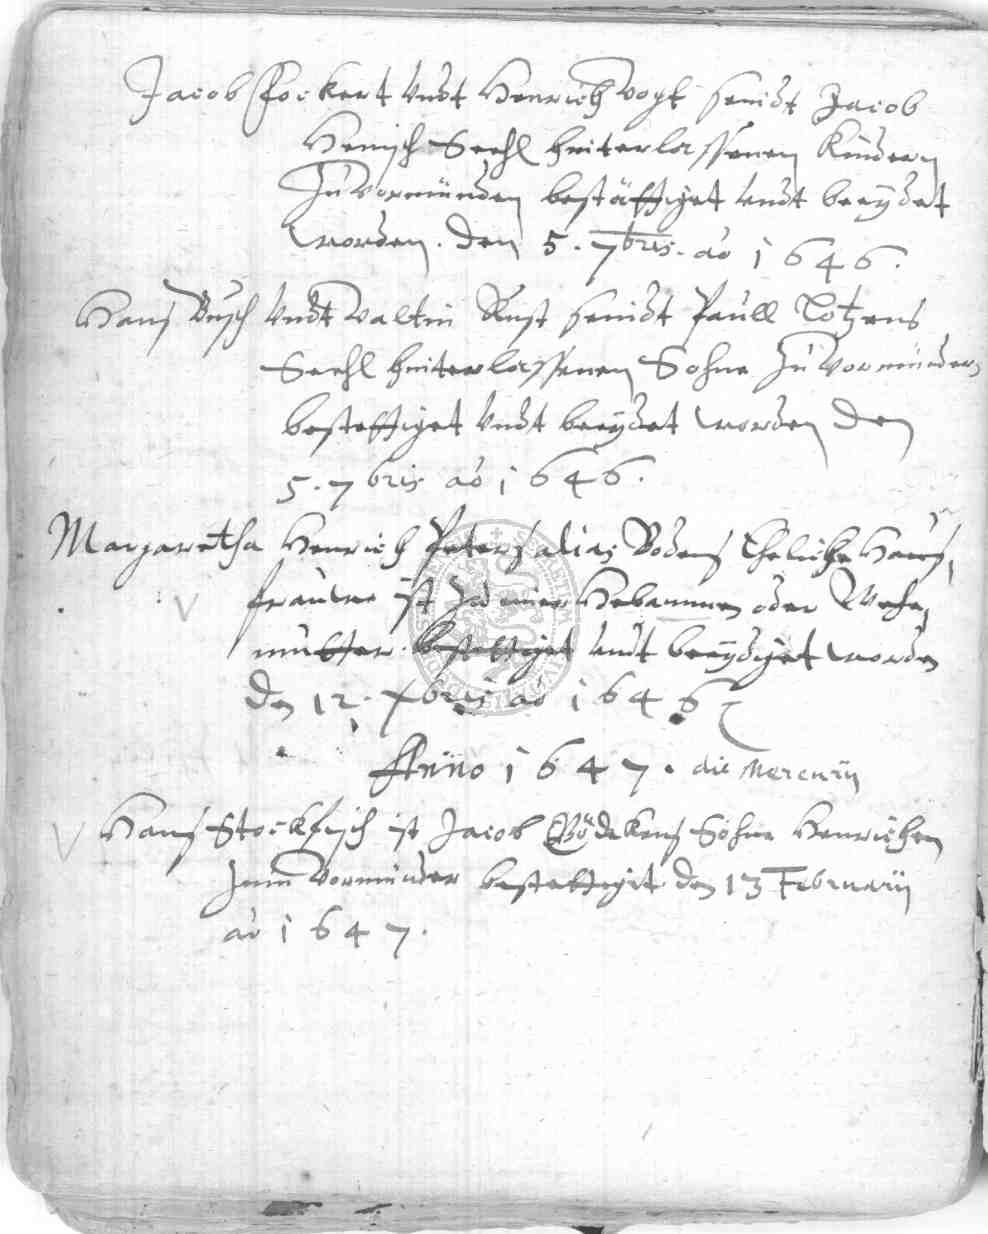 Jacob Fockert Undt Henrich Vogt seindt Jacob
Henisch Seehl hinterlassenen Kindern
Zu Vormünden bestättiget Undt beeydet
worden. Den 5. 7bris. ao 1646.
Hans Busch Undt Valtin Rust seindt Paull Lotzens
Seehl hinterlassenen Sohne Zu Vormünder
bestettiget Undt beeydet worden Den
5. 7bris ao 1646.
Margaretha Henrich Peters alias Bodens Eheliche Haus,
frauwe ist Zu einer Hebammen oder Wehe,
mutter bestettiget Undt beeydiget worden
Den 12. Xbris ao 1646
Anno 1647. die Mercurij
Hans Stockfisch ist Jacob Bödekens Sohne Henrichen
Zum Vormünder bestettiget den 13 Februarij
ao 1647.